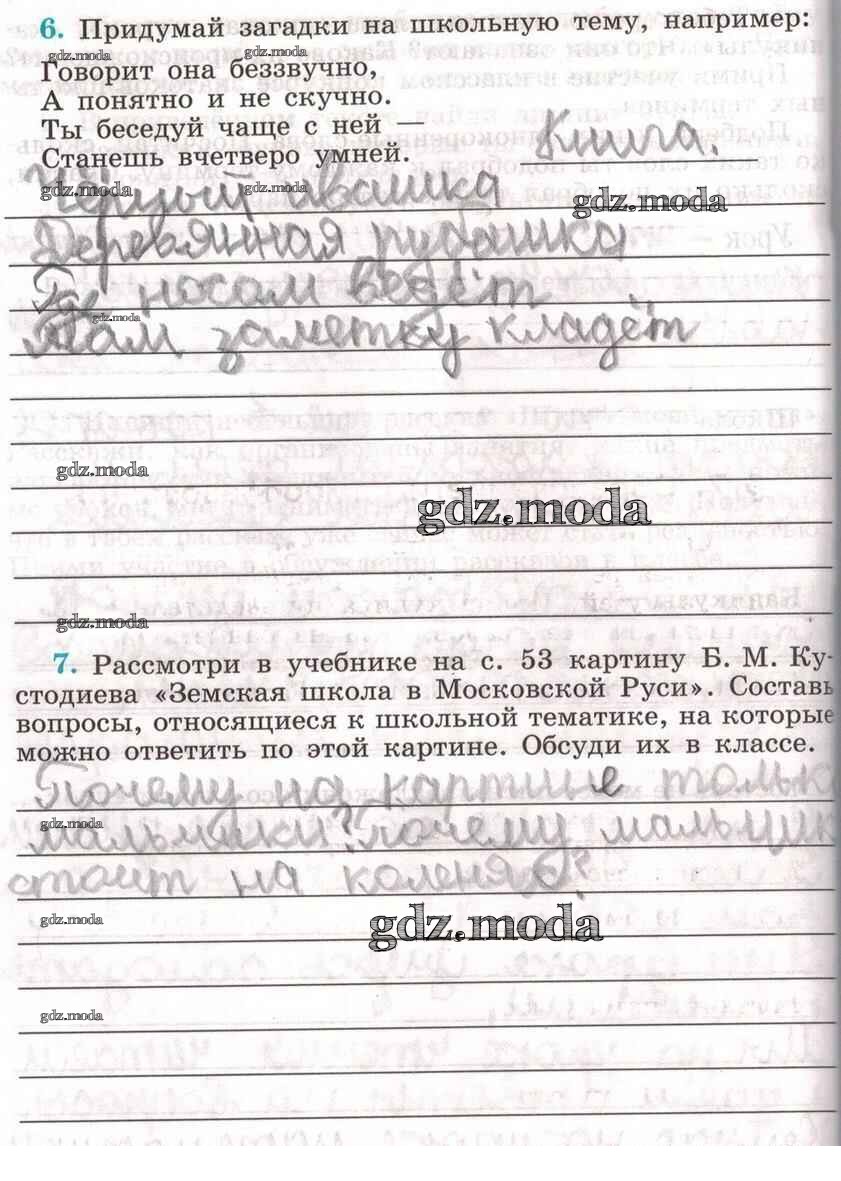 6. Придумай загадки на школьную тему, например:
gdz.moda gdz.moda
Говорит она беззвучно,
А понятно и не скучно.
Ты беседуй чаще с ней
Станешь вчетверо умней. Книга.
gdz.moda gdz.moda gdz.moda
Чёрный ивашка
Деревянная рубашка
Где носом ведёт
gdz.moda
Там заметку кладёт
gdz.moda
gdz.moda
gdz.moda
7. Рассмотри в учебнике на с. 53 картину Б. М. Ку-
стодиева «Земская школа в Московской Руси». Составь
вопросы, относящиеся к школьной тематике, на которые
можно ответить по этой картине. Обсуди их в классе.
Почему на картине тольк
gdz.moda
мальчики? почему мальчик
стоит на коленях?
gdz.moda gdz.moda
gdz.moda